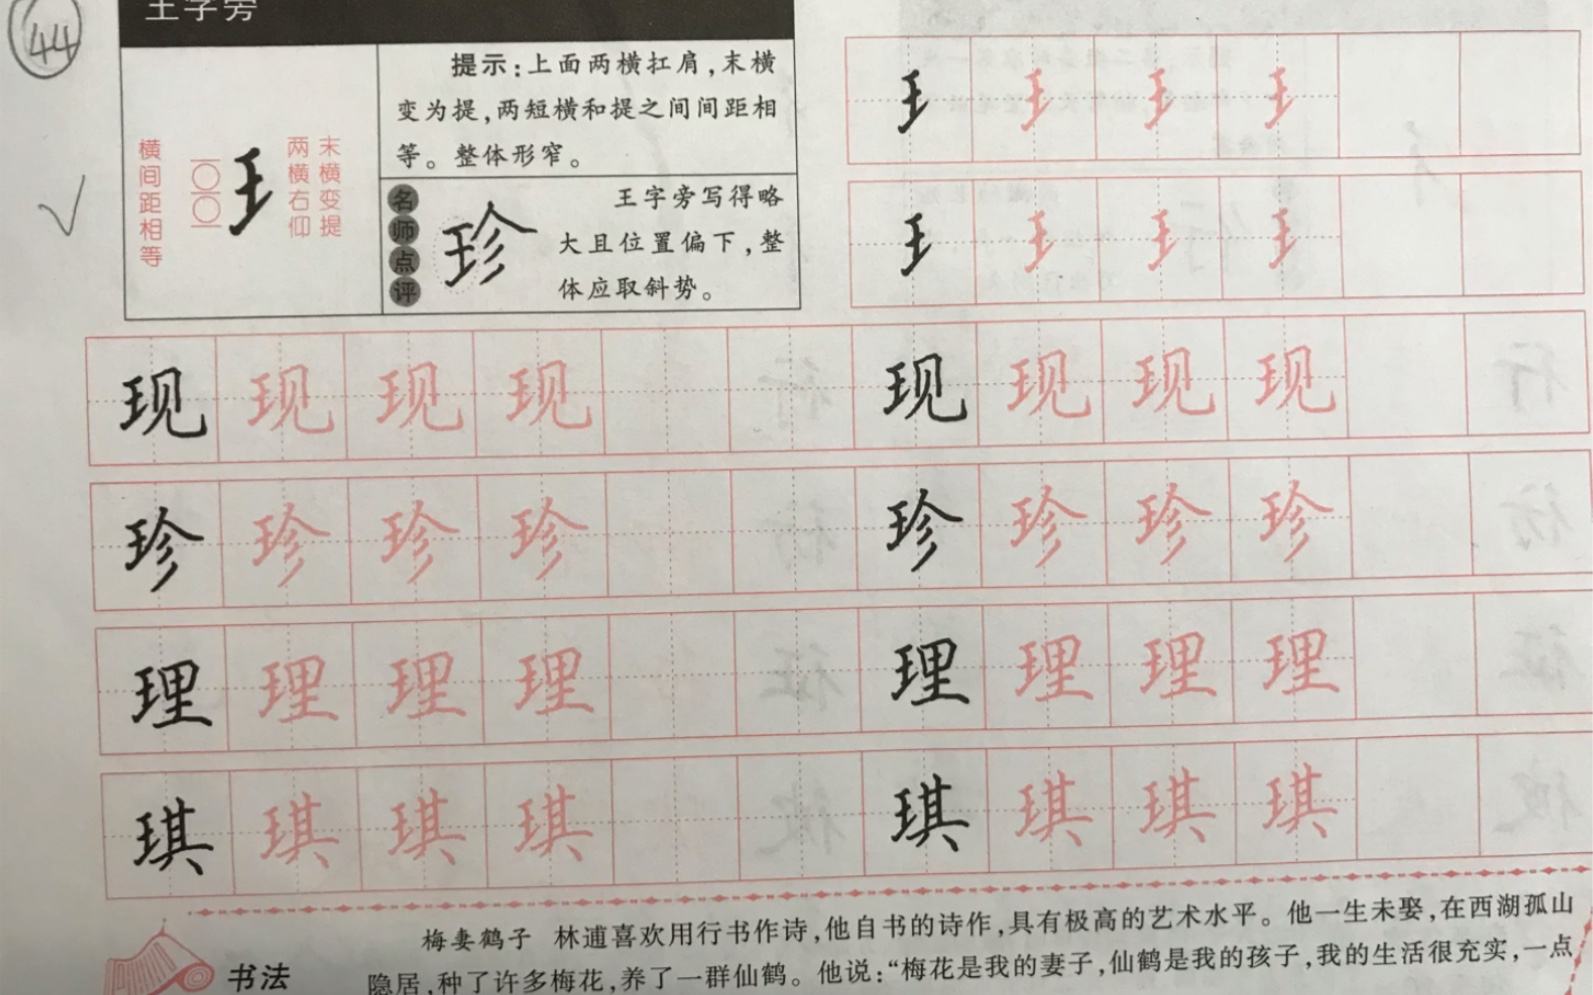 44
王字旁
提示：上面两横扛肩，末横
变为提，两短横和提之间间距相
等。整体形窄。
横间距相等
两横右仰
末横变提
名师点评
珍
王字旁写得略
大且位置偏下，整
体应取斜势。
现 现 现 现 现 现 现 现
珍 珍 珍 珍 珍 珍 珍 珍
理 理 理 理 理 理 理 理
琪 琪 琪 琪 琪 琪 琪 琪
书法
梅妻鹤子 林逋喜欢用行书作诗，他自书的诗作，具有极高的艺术水平。他一生未娶，在西湖孤山
隐居，种了许多梅花，养了一群仙鹤。他说：“梅花是我的妻子，仙鹤是我的孩子，我的生活很充实，一点